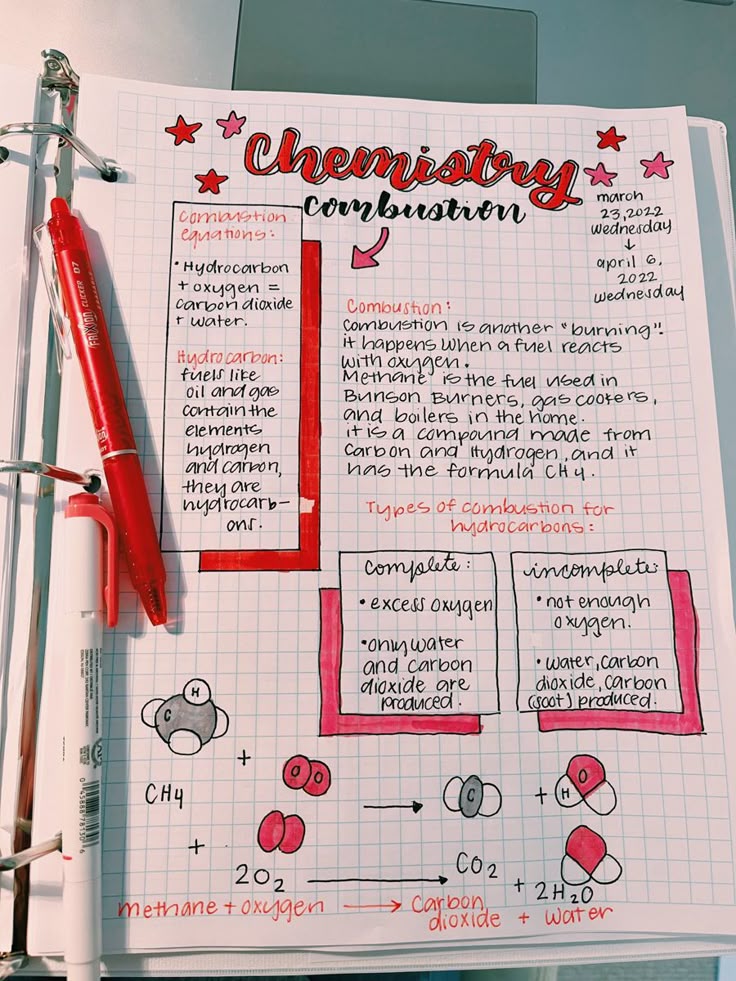 Chemistry
combustion
march
23, 2022
wednesday
↓
april 6,
2022
wednesday
Combustion
equations:
• Hydrocarbon
+ oxygen =
carbon dioxide
+ water.
Hydrocarbon:
fuels like
oil and gas
contain the
elements
hydrogen
and carbon,
they are
hydrocarb-
ons.
Combustion:
combustion is another "burning".
it happens when a fuel reacts
with oxygen.
Methane is the fuel used in
Bunson Burners, gas cookers,
and boilers in the home.
it is a compound made from
Carbon and Hydrogen, and it
has the formula CH4.
Types of combustion for
hydrocarbons:
complete:
• excess oxygen
• only water
and carbon
dioxide are
produced.
incomplete:
• not enough
oxygen.
• water, carbon
dioxide, carbon
(soot) produced.
H
C
+
O O
→
C
+
H O
CH4
+
2O2
→
CO2
+ 2H2O
methane + oxygen → Carbon
dioxide + water
FRIXION CLICKER 07